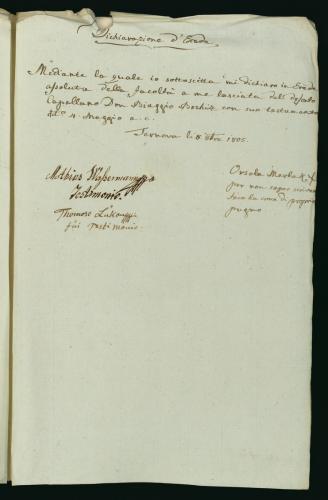 Dichiarazione d'Erede
Mediante la quale io sottoscritta mi dichiaro in Erede
assoluta della Facoltà a me lasciata dal defonto
Capellano Don Biaggio con suo testamento
4 Maggio a. c.
Ternova li 8 1805.
Mathias Wassermann
Testimonio.
Thomase
fui testimonio.
Orsola
per non saper scrivere
fece la croce di proprio
pugno